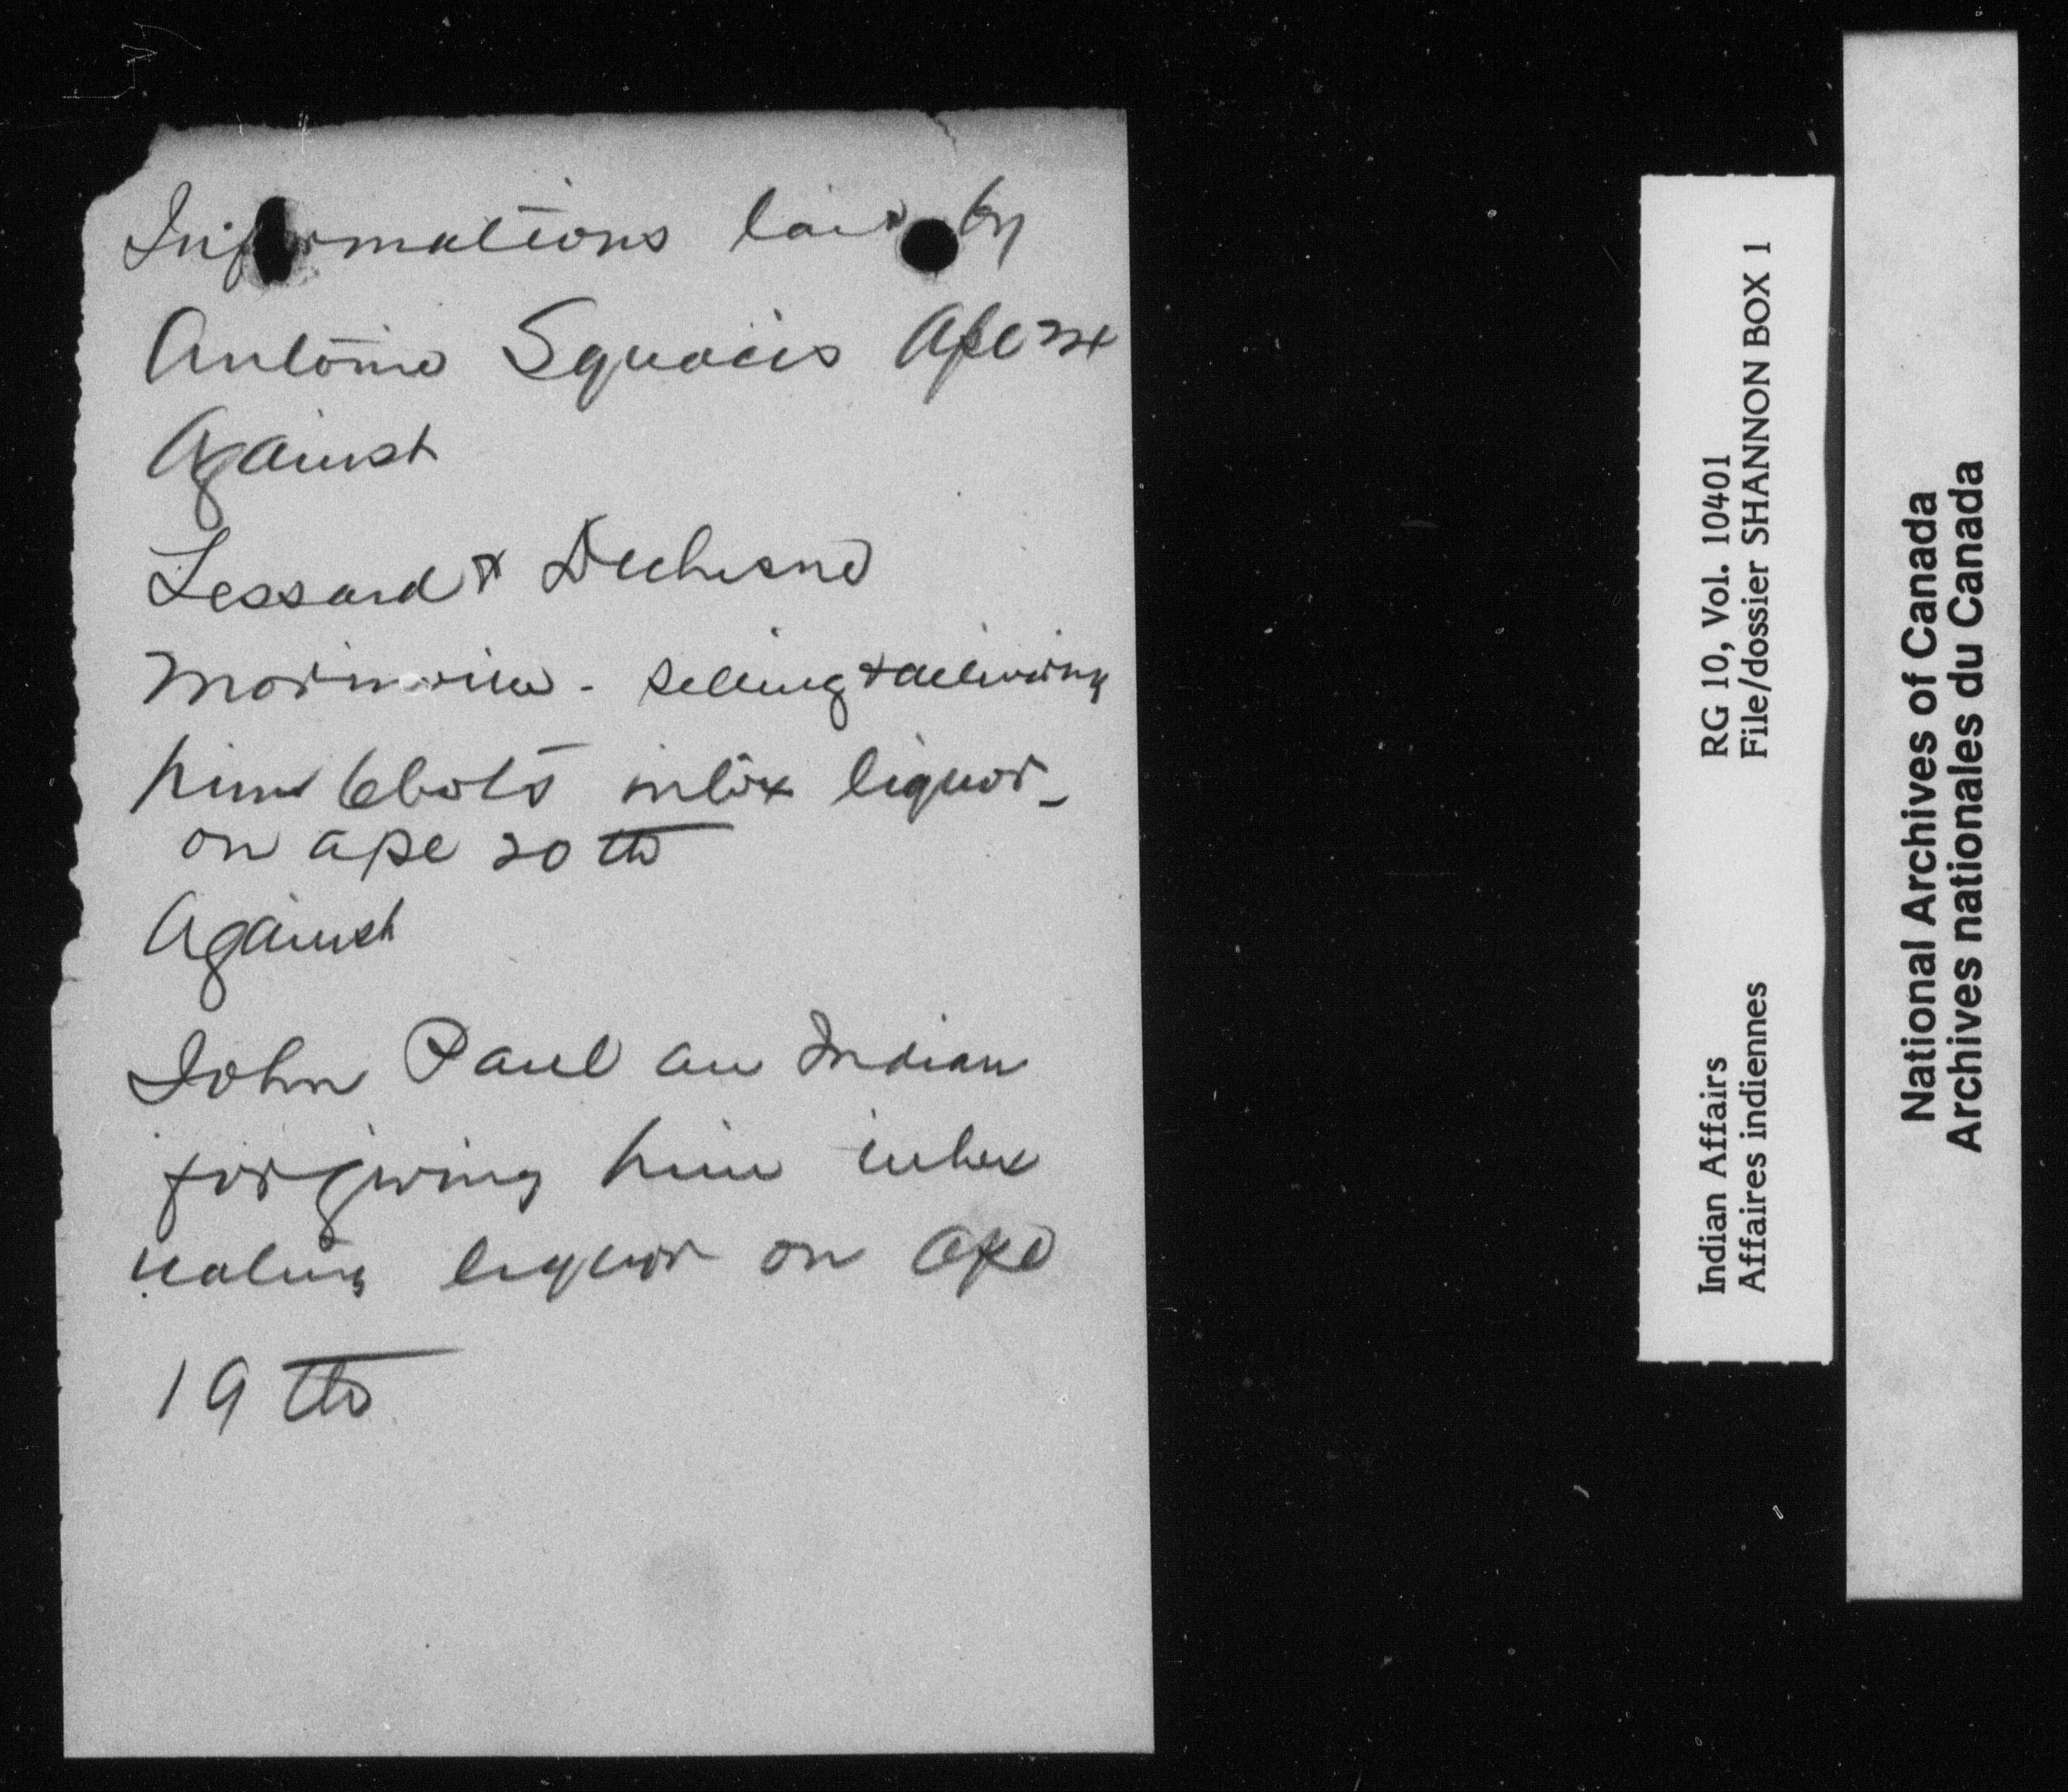 Informations laid by
Antoine Squains Ape
Against
Lessard & Duchesne
Morinville - selling & delivering
him 6 bots intox liquor -
on Ape 20th
Against
John Paul an Indian
for giving him intox
icating liquor on Ape
19th
RG 10, Vol. 10401
File/dossier SHANNON BOX 1
Indian Affairs
Affaires indiennes
National Archives of Canada
Archives nationales du Canada